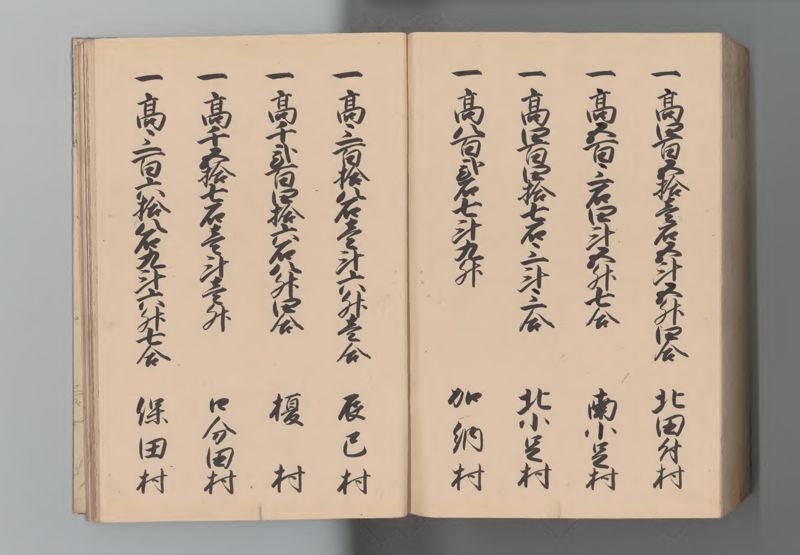 一 高四百五拾壱石五斗五升四合 北田付村
一 高五百三石四斗五升七合 南小足村
一 高四百四拾七石三斗三合 北小足村
一 高八百弐石七斗九升 加納村
一 高三百拾八石壱斗六升壱合 辰巳村
一 高千弐百四拾六石八升四合 榎村
一 高千五拾七石壱斗壱升 口分田村
一 高三百六拾八石九斗六升七合 保田村